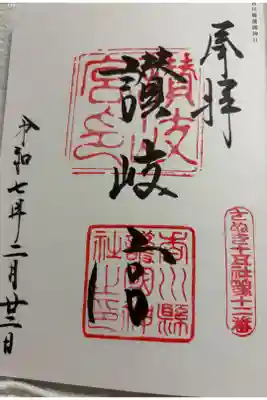 奉拝
さぬき十五社第十二番
讃岐宮
讃岐宮印
香川縣護國神社之印
令和七年二月廿二日